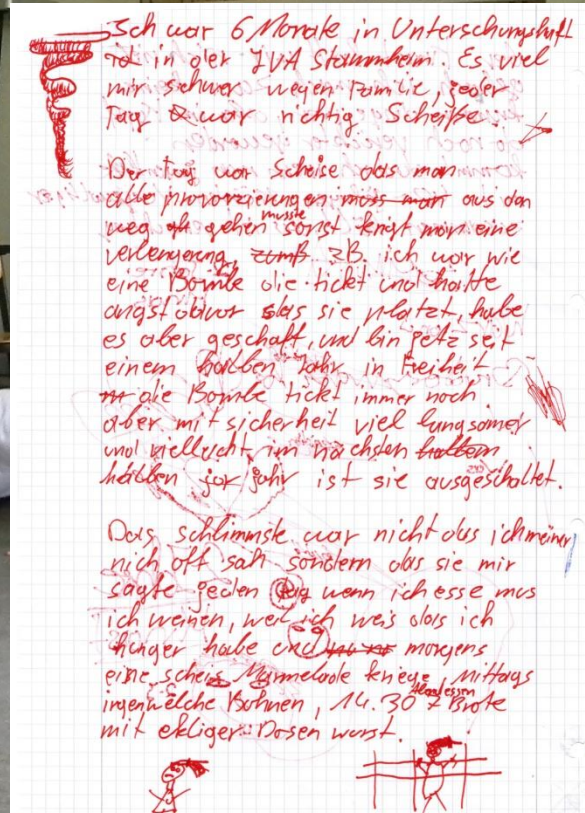 Ich war 6 Monate in Unterschungshaft
in der JVA Stammheim. Es viel
mir schwer wegen Familie, jeder
Tag war richtig Scheiße.
Der Tag war Scheise das man
alle provozierungen aus dan
weg gehen musste sonst kriegt man eine
verlengerung, zB. ich war wie
eine Bombe die tickt und hatte
angst davor das sie platzt, habe
es aber geschaft, und bin jetz seit
einem halben Jahr in Freiheit
die Bombe tickt immer noch
aber mit sicherheit viel langsamer
und vielleicht im nächsten
halben jahr ist sie ausgeschaltet.
Das schlimmste war nicht das ich meiner
nich oft sah sondern das sie mir
sagte jeden tag wenn ich esse mus
ich weinen, weil ich weis das ich
hunger habe und morgens
eine scheis Marmelade kriege, Mittags
irgenwelche Bohnen, 14.30 Abendessen 7 Brote
mit ekliger Dosen wurst.